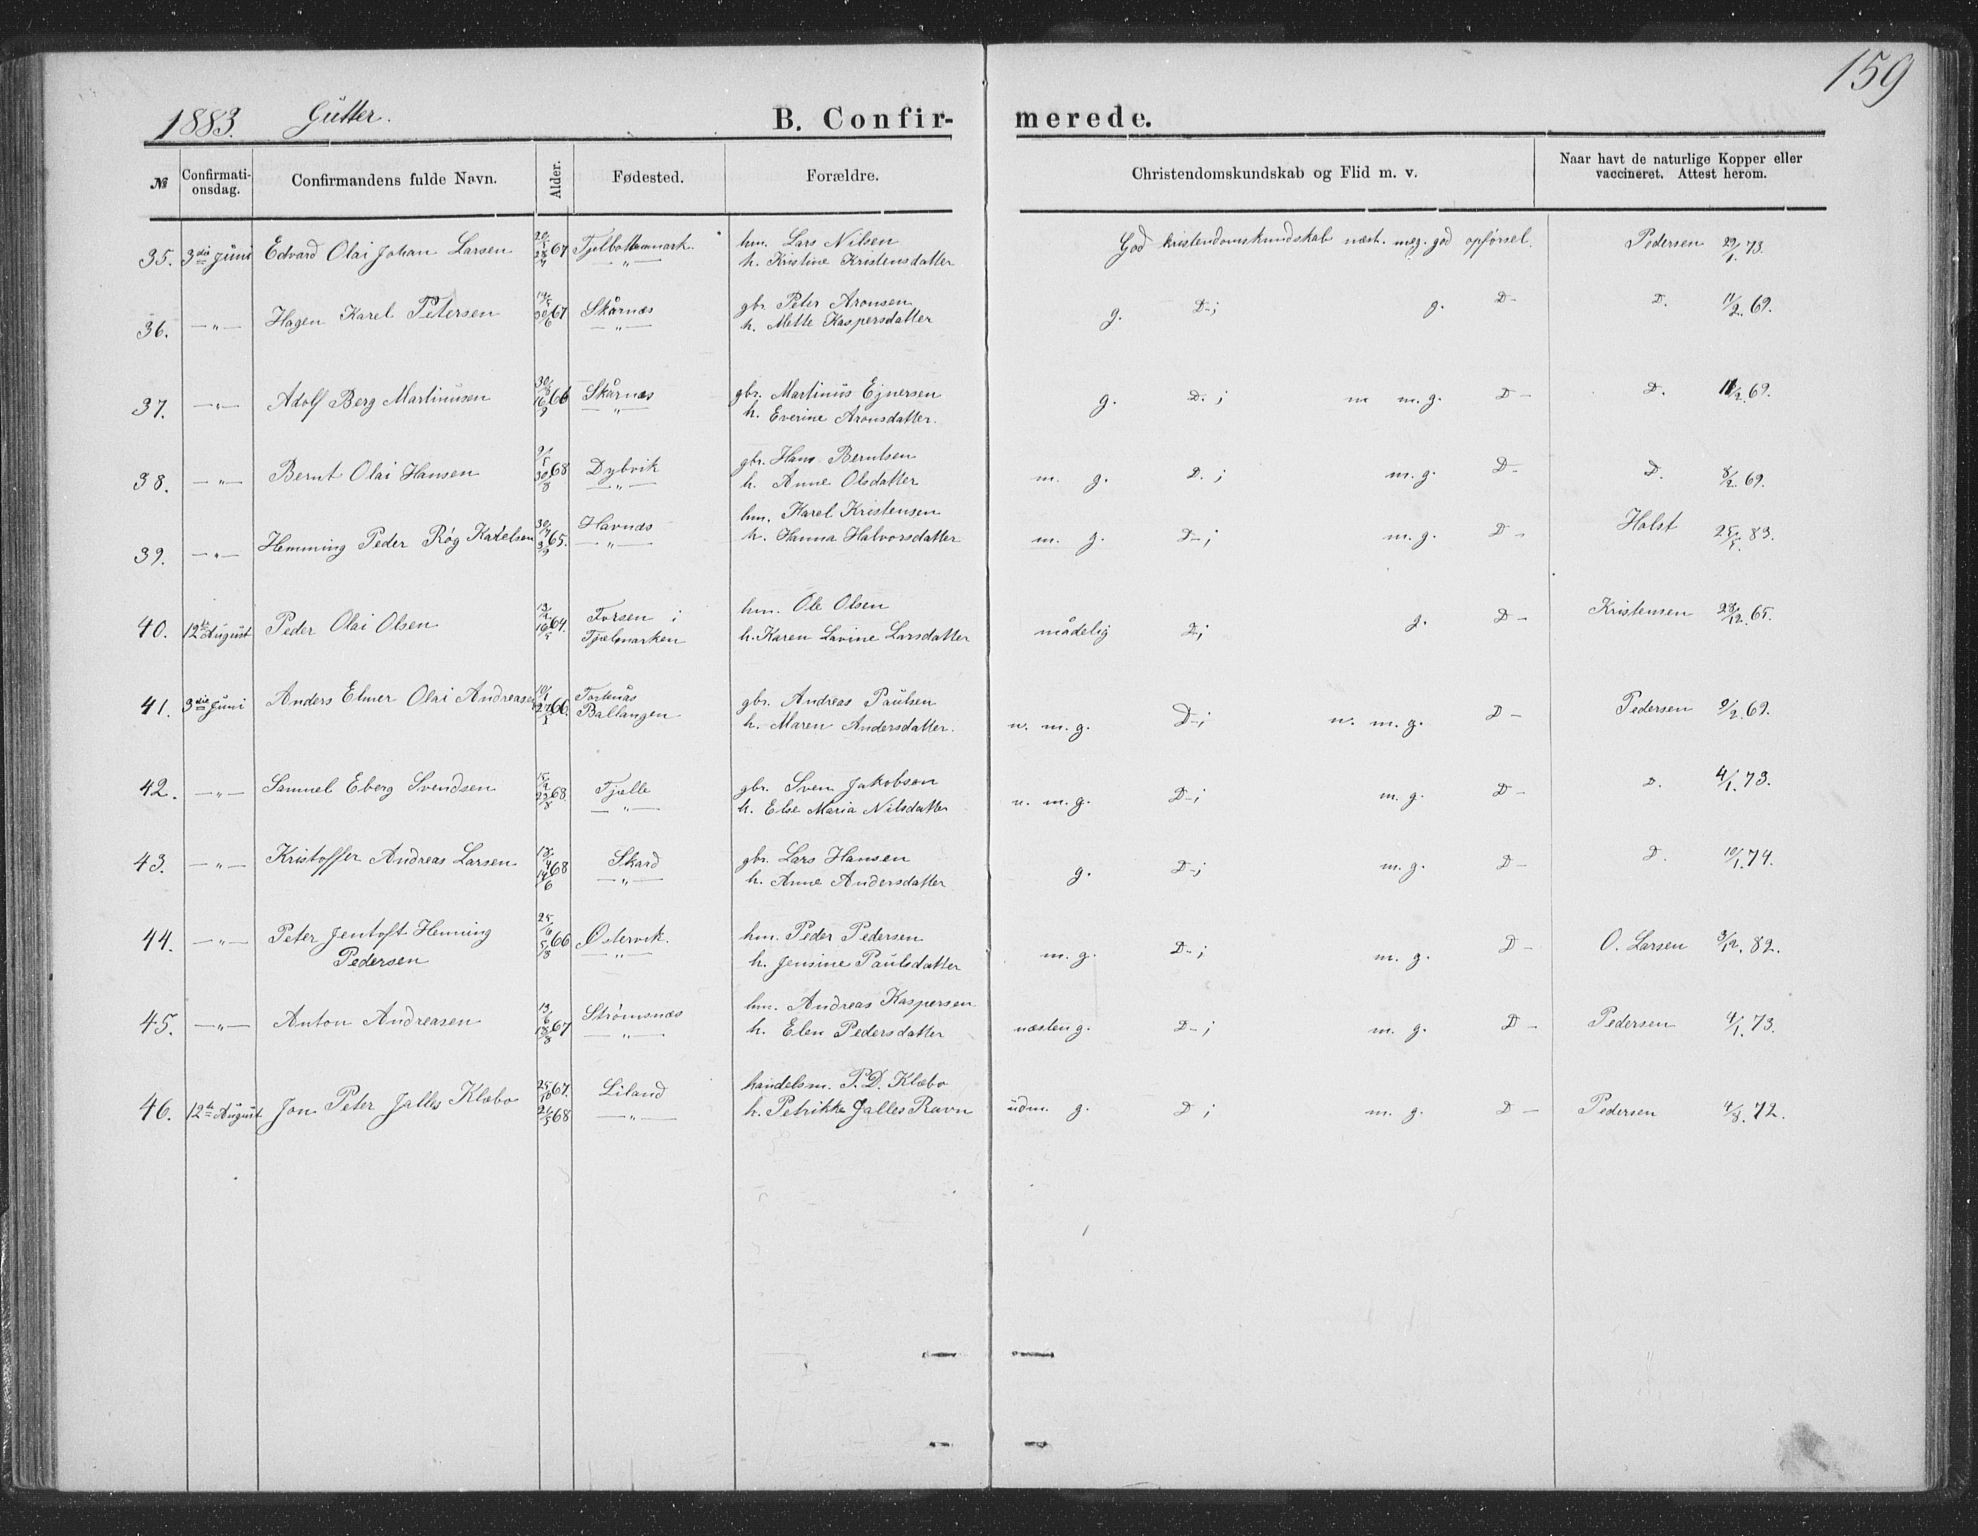 159
1883. Gütter. B. Confirmerede.
№ Confirmationsdag. Confirmandens fulde Navn. Alder. Fødested. Forældre. Christendomskundskab og Flid m. v. Naar havt de naturlige Kopper eller vaccineret. Attest herom.
35. 3die Juni Edvard Olai Johan Larsen 67 hm. Lars Nilsen God kristendomskundskab næst. meg. god opførsel. Pedersen 29/1. 73.
— " — h. Kristine Kristensdatter
36. — " — Hagen Karel Petersen 67 Skårnæs gbr. Peter Aronsen g. D-; g. D- D. 11/2. 69.
— " — h. Mette Kaspersdatter
37. — " — Adolf Berg Martinusen 66 Skårnæs gbr. Martinus Ejnersen g. D. ; m m. g. D- D. 11/2. 69.
— " — h. Everine Aronsdatter.
38. — " — Bernt Olai Hansen 68 Dybvik gbr. Hans Berntsen m. g. D. ; m. g. D- D. 8/2. 69.
— " — h. Anne Olsdatter
39. — " — Hemming Peder Røg Karelsen 65. Havnæs hm. Karel Kristensen m. g. D-; m. g. D- Holst 25/5. 83.
— " — h. Hanna Halvorsdatter
40. 12te August Peder Olai Olsen 64. Forsen i hm. Ole Olsen mådelig D; g. D- Kristensen 28/12. 65.
Tjælmarken h. Karen Lavine Larsdatter
41. 3die Juni Anders Elmer Olai Andreasen 66. gbr. Andreas Paulsen n. m. g. D-; n. m. g. D- Pedersen 9/2. 69.
Ballangen h. Maren Andersdatter.
42. — " — Samuel Eberg Svendsen 68 Fjelle gbr. Sven Jakobsen n. m. g. D-; m. g. D- D. 4/1. 73.
— " — h. Else Maria Nilsdatter
43. — " — Kristoffer Andreas Larsen 68 Skard gbr. Lars Hansen g. D-; m. g. D- D. 10/1. 74.
— " — h. Anne Andersdatter
44. — " — Peter Jentoft Henning 66 Østervik. hm. Peder Pedersen m. g. D-; m. g. D- O. Larsen 3/12. 82.
Pedersen — " — h. Jensine Paulsdatter
45. — " — Anton Andreasen 67 Strømsnæs hm. Andreas Kaspersen næsten g. D-; m. g. D- Pedersen 4/1. 73.
— " — h. Elen Pedersdatter
46. 12te August Jon Peter Jalles Klæbo 25/10 67. 68 Liland handelsm. P. D. Klæbo udm. g. D ; m. g. D- Pedersen 4/8. 72.
— " — h. Petrikke Jalles Ravn